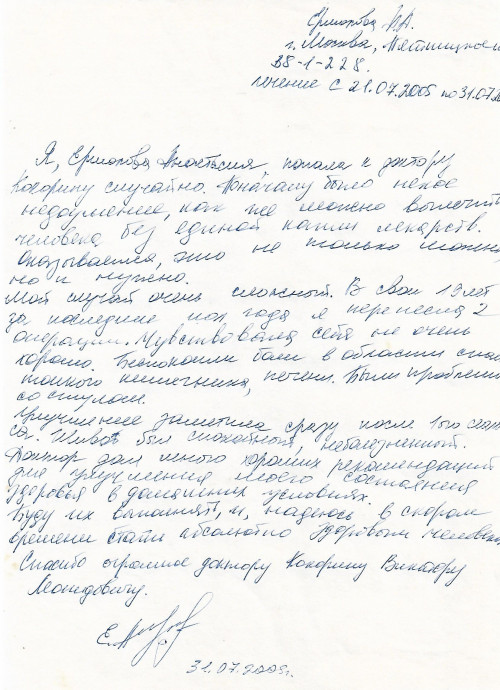 Ермакова И.А.
г. Москва, Мятницкое ш
38-1-228.
лечение с 21.07.2005 по 31.07.20
Я, Ермакова Анастасия, попала к доктору
Кокорину случайно. Поначалу было некое
недоумение, как же можно вылечить
человека без единой капли лекарств.
Оказывается, это не только можно,
но и нужно.
Мой случай очень сложный. В свои 19 лет
за последние пол года я перенесла 2
операции. Чувствовала себя не очень
хорошо. Беспокоили боли в области
тонкого кишечника, печени. Были проблемы
со стулом.
Улучшение заметила сразу после 1ого сеан
са. Живот был спокойный, неболезненный.
Доктор дал много хороших рекомендаций
для улучшения моего состояния
здоровья в домашних условиях.
Буду их выполнять, и, надеюсь в скором
времени стать абсолютно здоровым человеком
Спасибо огромное доктору Кокорину Виктору
31.07.2005г.